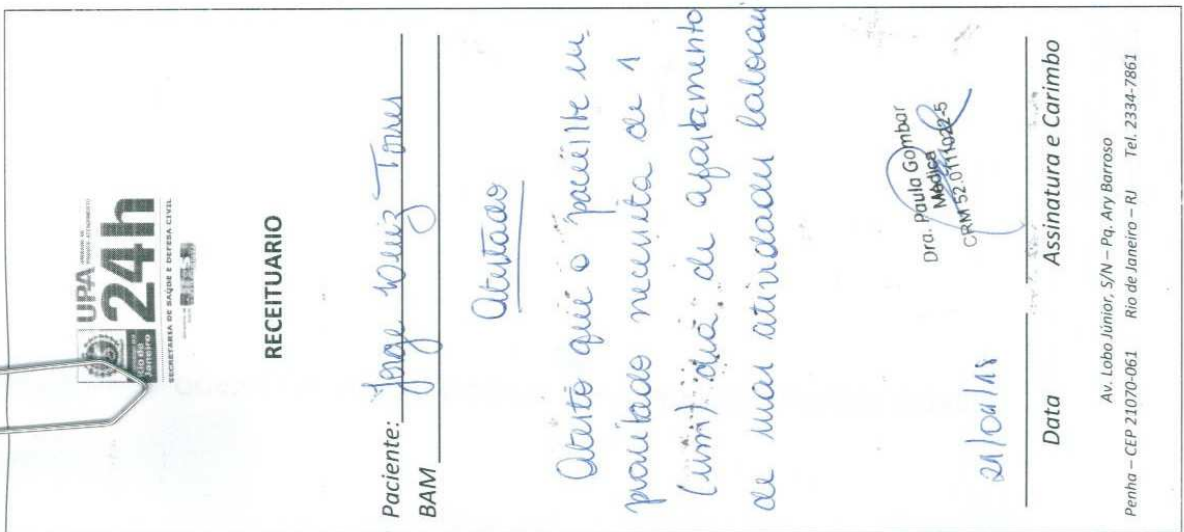 UPA
24h
Rio de Janeiro
SECRETARIA DE SAÚDE E DEFESA CIVIL
RECEITUARIO
Paciente: Jorge Luiz Torres
BAM
Atestado
Atesto que o paciente su-
pracitado necessita de 1
(um) dia de afastamento
de suas atividades laborais
Dra. Paula Gombar
Médica
CRM 52.0111022-5
21/04/15
Data
Assinatura e Carimbo
Av. Lobo Júnior, S/N – Pq. Ary Barroso
Penha – CEP 21070-061 Rio de Janeiro – RJ Tel. 2334-7861